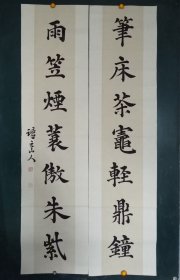 筆床茶竈輕鼎鐘
雨笠煙蓑傲朱紫